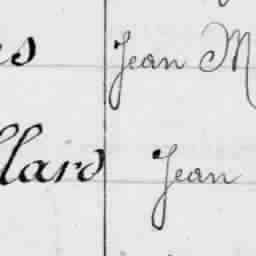 es Jean M
llard Jean